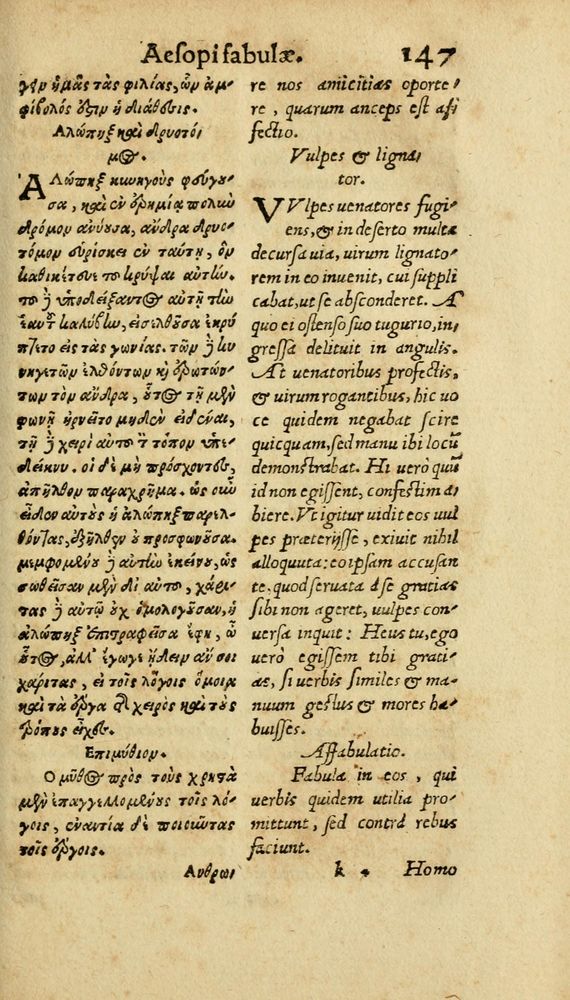 Aesopi fabulæ. 147
γεῖν ἡμᾶς τὰς φιλίας, ὧν ἀμ-
φίβολός ἐστιν ἡ διάθεσις.
Ἀλώπηξ καὶ δρυοτό-
μος.
Ἀλώπηξ κυνηγοὺς φεύγου-
σα, καὶ ἐν ἐρημίᾳ πολλὺν
δρόμον ἀνύουσα, ἄνδρα δρυο-
τόμον εὑρίσκει ἐν ταύτῃ, ὃν
καθικέτευε τοῦ κρύψαι αὐτήν.
τοῦ δὲ ὑποδείξαντος αὐτῇ τὴν
ἑαυτοῦ καλύβην, εἰσελθοῦσα ἐκρύ
πτετο εἰς τὰς γωνίας. τῶν δὲ κυ
νηγετῶν ἐλθόντων καὶ ἐρωτών-
των τὸν ἄνδρα, οὗτος τῇ μὲν
φωνῇ ἠρνεῖτο μηδὲν εἰδέναι,
τῇ δὲ χειρὶ αὐτοῦ τὸν τόπον ὑπε-
δείκνυ. οἱ δὲ μὴ πρόσχοντες,
ἀπῆλθον παραχρῆμα. ὡς οὖν
εἶδεν αὐτοὺς ἡ ἀλώπηξ παρελ-
θόντας, ἐξῆλθεν οὐ προσφωνοῦσα.
μεμφομένου δὲ αὐτὴν ἐκείνου, ὡς
σωθεῖσαν μὲν δι' αὐτοῦ, χάρι-
τας δὲ αὐτῷ οὐχ ὁμολογοῦσαν, ἡ
ἀλώπηξ ἐπιστραφεῖσα ἔφη, ὦ
οὗτος, ἀλλ' ἔγωγε ᾔδειν ἄν σοι
χάριτας, εἰ τοῖς λόγοις ὅμοια
καὶ τὰ ἔργα τῆς χειρὸς καὶ τοὺς
τρόπους εἶχες.
Ἐπιμύθιον.
Ὁ μῦθος πρὸς τοὺς χρηστὰ
μὲν ἐπαγγελλομένους τοῖς λό-
γοις, ἐναντία δὲ ποιοῦντας
τοῖς ἔργοις.
Ἄνθρω-
re nos amicitias oporte-
re, quarum anceps est af
fectio.
Vulpes & ligna-
tor.
VVlpes uenatores fugi-
ens, & in deserto multa
decursa uia, uirum lignato-
rem in eo inuenit, cui suppli
cabat, ut se absconderet. A
quo ei ostenso suo tugurio, in-
gressa delituit in angulis.
At uenatoribus profectis,
& uirum rogantibus, hic uo
ce quidem negabat scire
quicquam, sed manu ibi locū
demonstrabat. Hi uerò quū
id non egissent, confestim a-
biere. Vt igitur uidit eos uul
pes præterijsse, exiuit nihil
alloquuta: eo ipsam accusan
te, quod seruata à se gratias
sibi non ageret, uulpes con-
uersa inquit: Heus tu, ego
uerò egissem tibi grati-
as, si uerbis similes & ma-
nuum gestus & mores ha-
buisses.
Affabulatio.
Fabula in eos, qui
uerbis quidem utilia pro-
mittunt, sed contrà rebus
faciunt.
k Homo